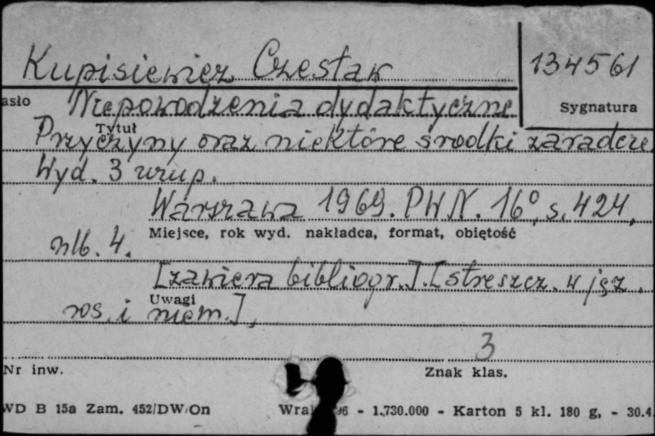 Kupisiewicz Czesław 134561
asło Niepowodzenia dydaktyczne Sygnatura
Tytuł
Przyczyny oraz niektóre środki zaradcze.
Wyd. 3 uzup.
Warszawa 1969. PWN. 16°, s. 424,
Miejsce, rok wyd. nakładca, format, objętość
nlb. 4.
[zawiera bibliogr.]. [streszcz. w jęz.
Uwagi
ros. i niem.],
3
Nr inw. Znak klas.
WD B 15a Zam. 452/DW/On 96 - 1.730.000 - Karton 5 kl. 180 g, - 30.4